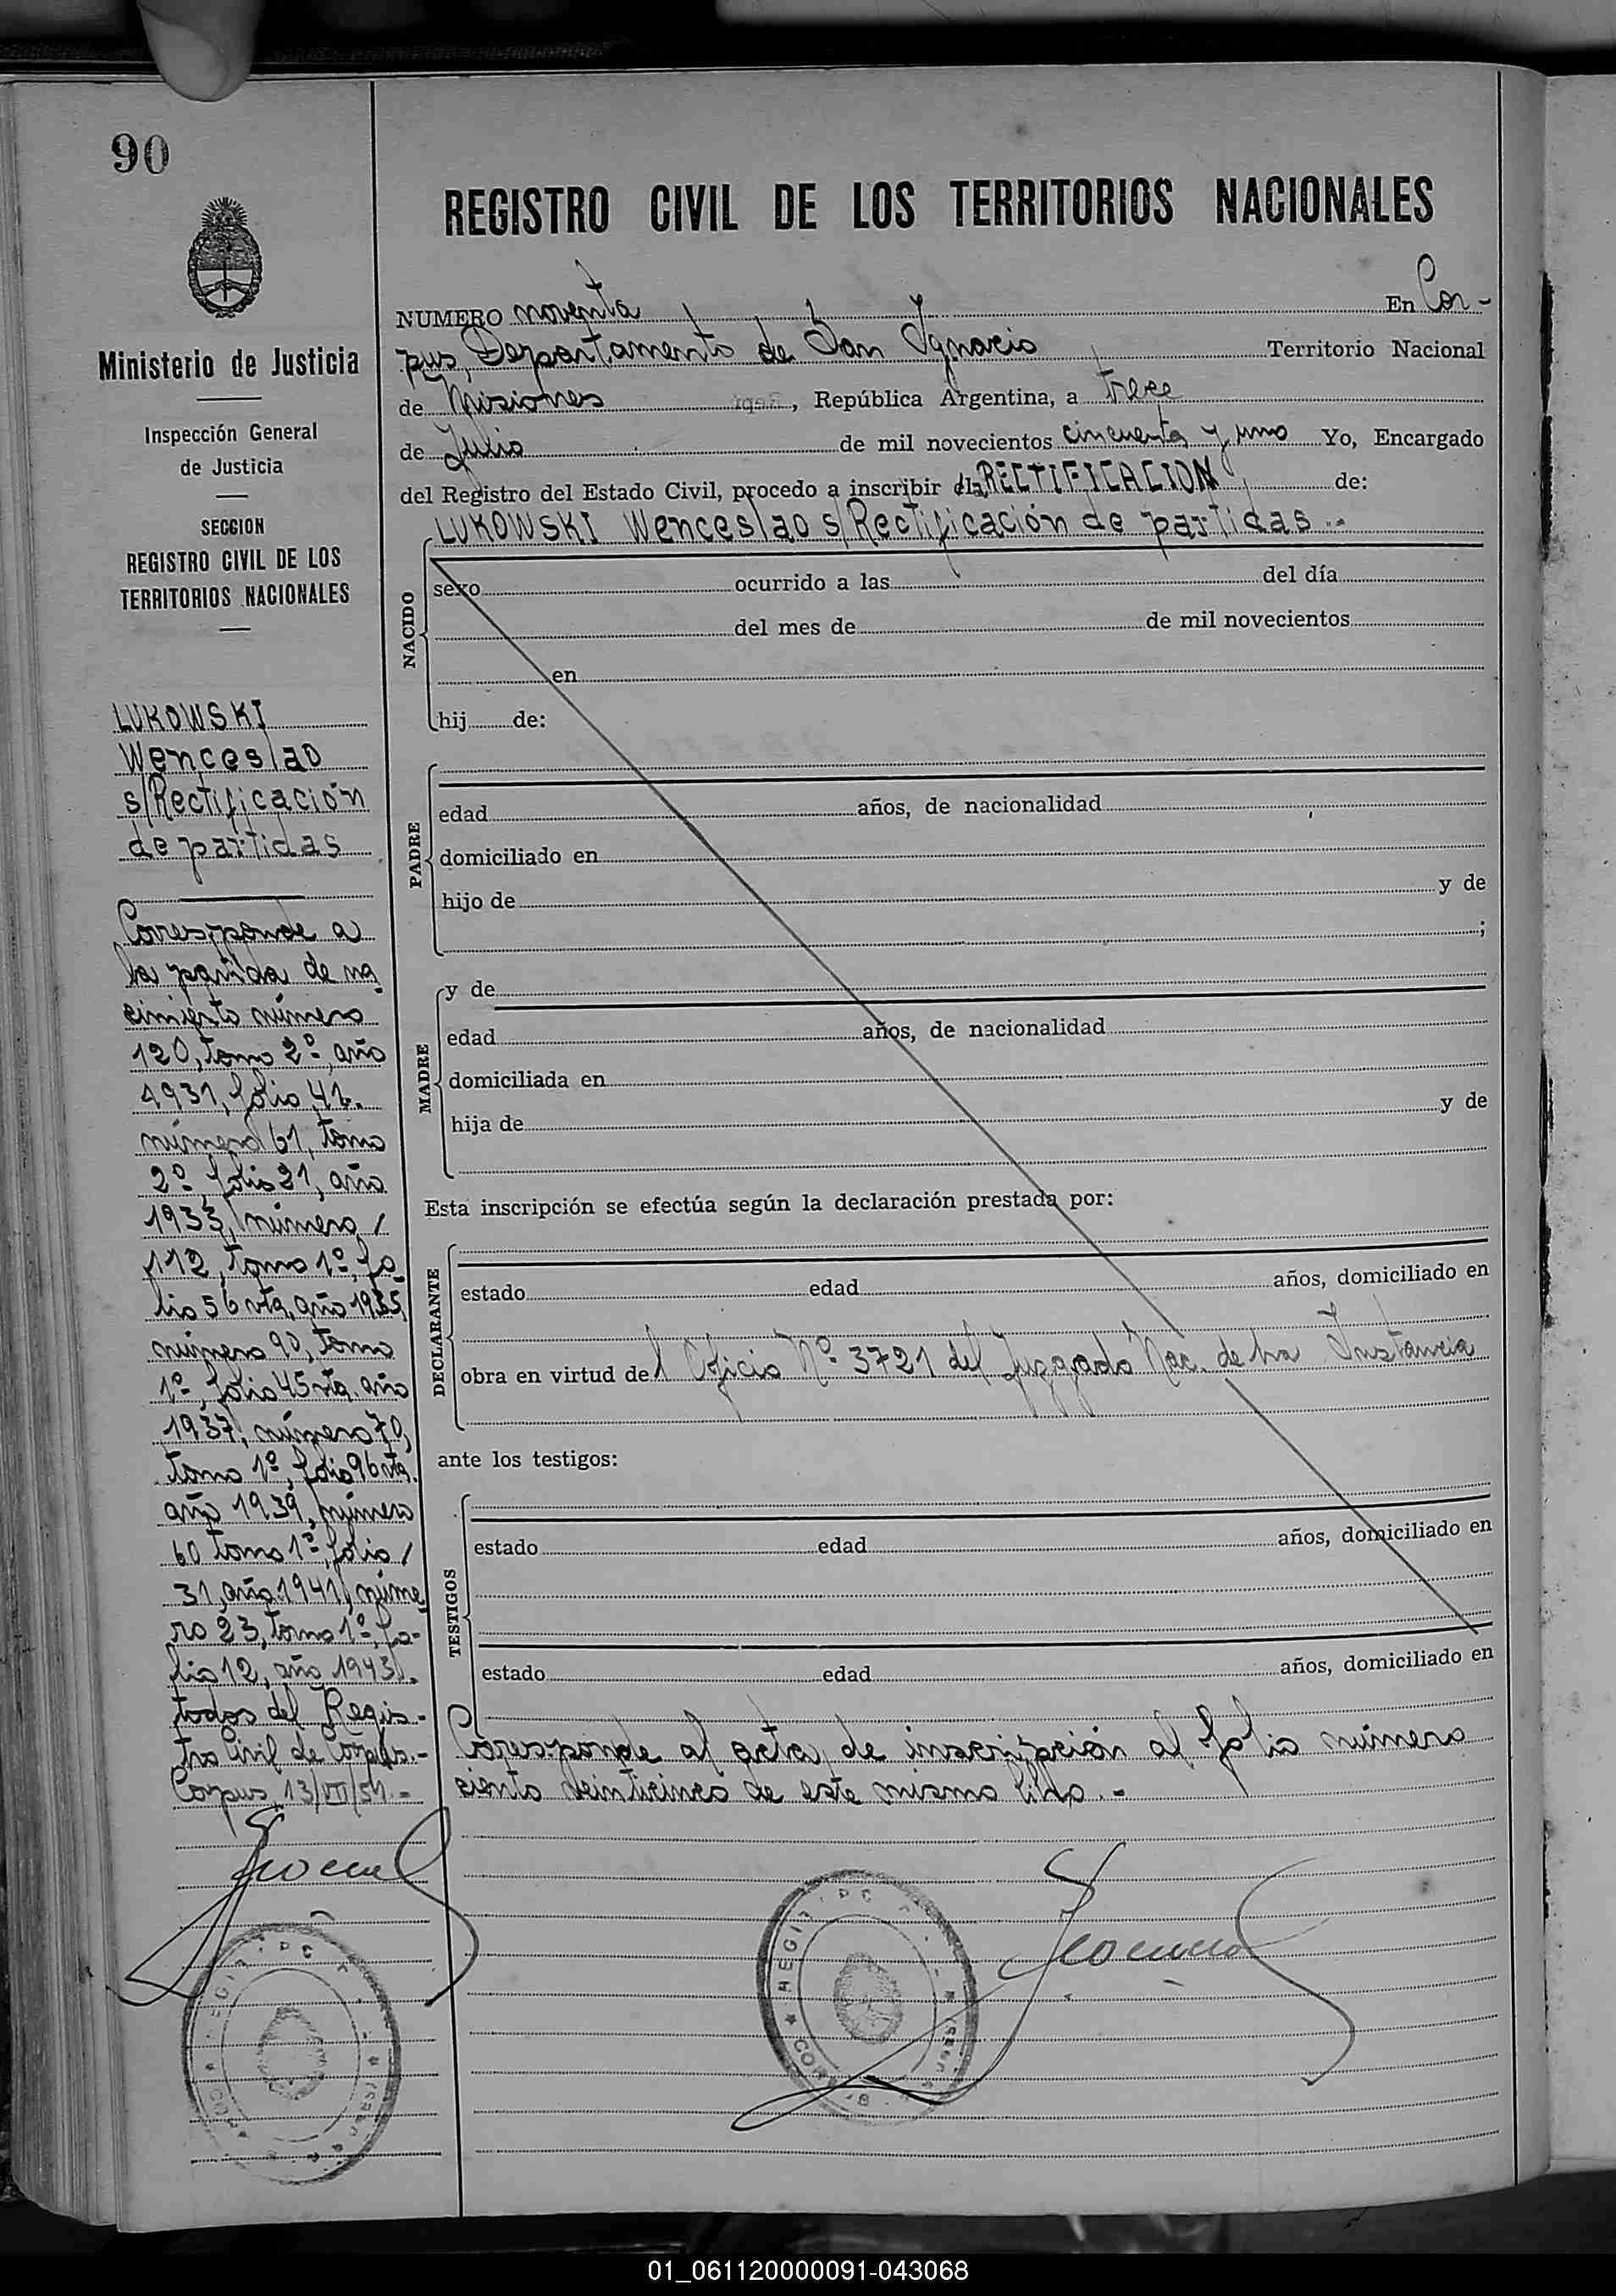 90
Ministerio de Justicia
Inspección General
de Justicia
SECCION
REGISTRO CIVIL DE LOS
TERRITORIOS NACIONALES
LUKOWSKI
Wenceslao
s/Rectificación
de partidas
Corresponde a
la partida de na
cimiento número
120, tomo 2º, año
1931, folio 41.
número 61, tomo
2º, folio 21, año
1933, número /
112, tomo 1º, fo
lio 56 vta, año 1935,
número 90, tomo
1º, folio 45 vta. año
1937, número 70,
tomo 1º, folio 96 vta.
año 1939, número
60 tomo 1º, folio /
31, año 1941, núme
ro 23, tomo 1º, fo-
lio 12, año 1943.
todos del Regis-
tro Civil de Corpus.-
Corpus, 13/VII/51.-
REGISTRO CIVIL DE LOS TERRITORIOS NACIONALES
NUMERO noventa En Cor-
pus, Departamento de San Ygnacio Territorio Nacional
de Misiones, República Argentina, a trece
de Julio de mil novecientos cincuenta y uno Yo, Encargado
del Registro del Estado Civil, procedo a inscribir la RECTIFICACION de:
LUKOWSKI Wenceslao s/Rectificación de partidas.-
NACIDO
sexo ocurrido a las del día
del mes de de mil novecientos
en
hij de:
PADRE
edad años, de nacionalidad
domiciliado en
hijo de y de
;
MADRE
y de
edad años, de nacionalidad
domiciliada en
hija de y de
Esta inscripción se efectúa según la declaración prestada por:
DECLARANTE
estado edad años, domiciliado en
obra en virtud del Oficio Nº 3721 del Juzgado Nac. de 1ra Instancia
ante los testigos:
TESTIGOS
estado edad años, domiciliado en
estado edad años, domiciliado en
Corresponde al acta de inscripción al folio número
ciento veinticinco de este mismo libro.-
01_061120000091-043068